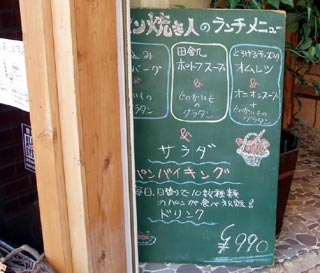 ン焼き人のランチメニュー
田舎風
ポトフスープ
&
じゃがいもの
グラタン
とろけるチーズの
オムレツ
&
オニオンスープ
+
じゃがいもの
グラタン
&
サラダ
パンバイキング
毎日、日替りで10数種類
のパンが食べ放題!
ドリンク
¥990